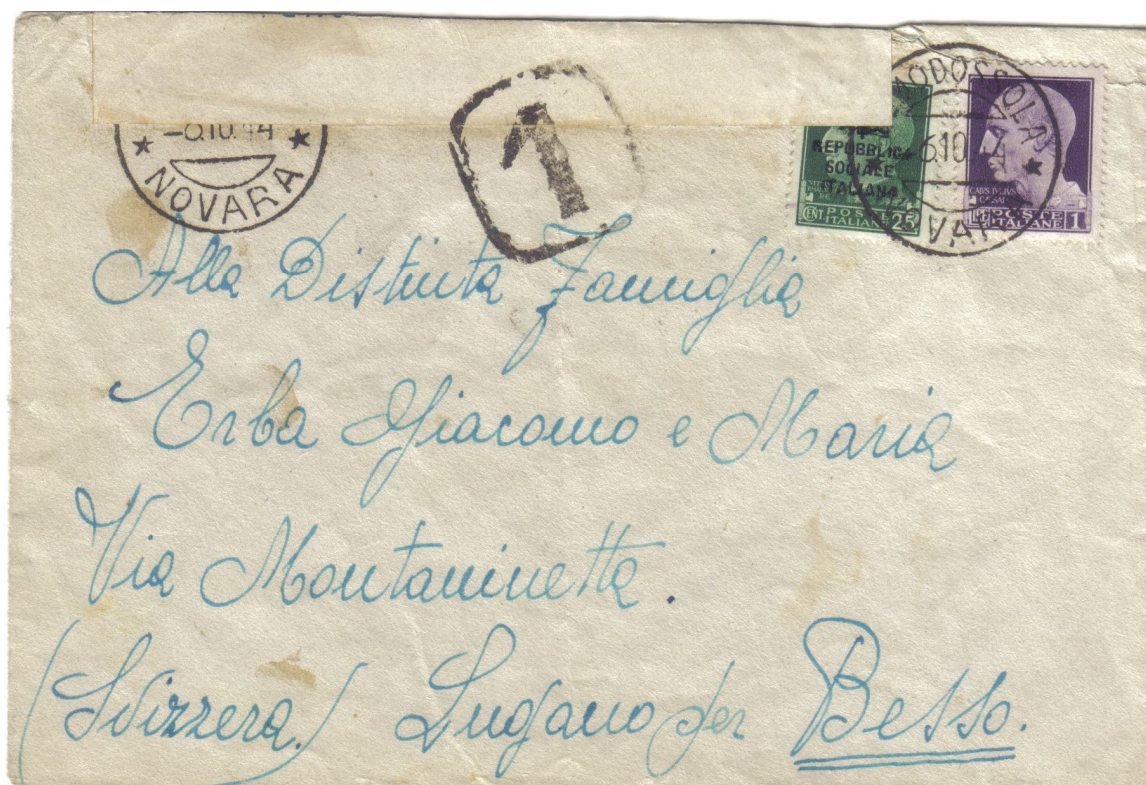 -6.10.44
NOVARA
1
REPUBBLICA
SOCIALE
ITALIANA
CENT POSTE 25
ITALIANE
DOMODOSSOLA
6.10.44
NOVARA
CAIVS IVLIVS
CAESAR
POSTE
ITALIANE 1
Alla Distinta Famiglia
Erba Giacomo e Maria
Via Montaninetta.
(Svizzera.) Lugano per Besso.